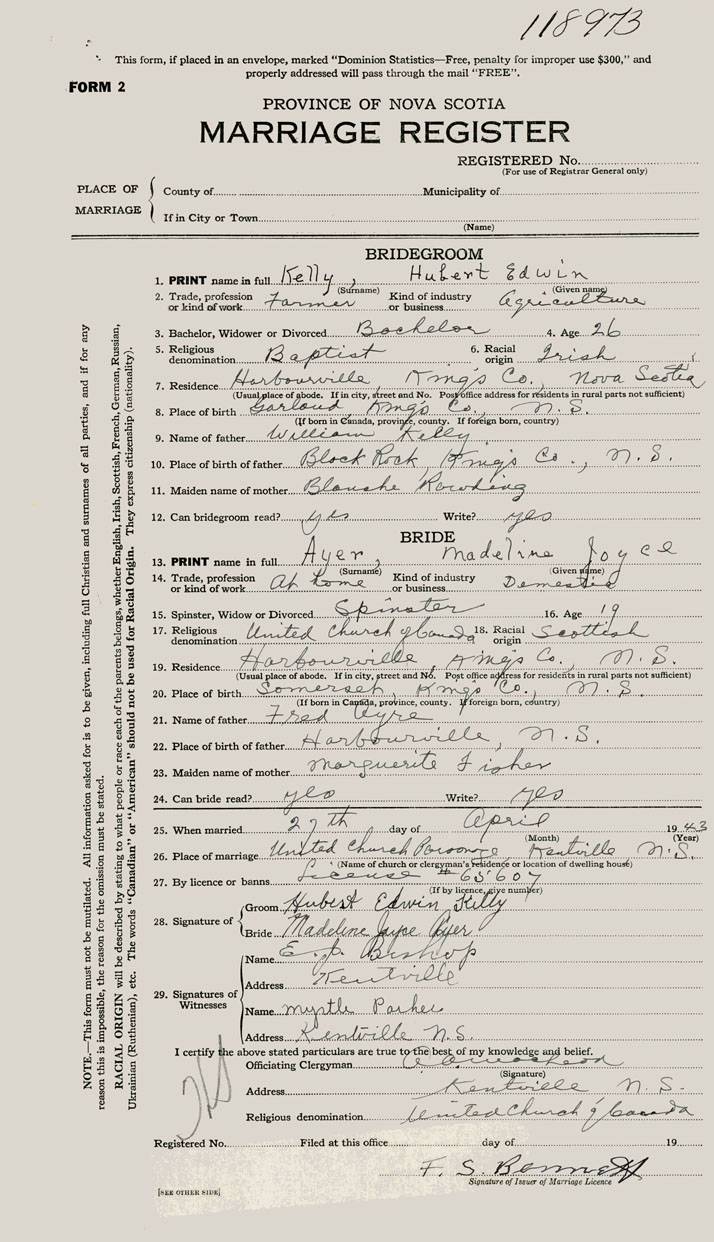 118973
This form, if placed in an envelope, marked "Dominion Statistics—Free, penalty for improper use $300," and
properly addressed will pass through the mail "FREE".
FORM 2
PROVINCE OF NOVA SCOTIA
MARRIAGE REGISTER
REGISTERED No.
(For use of Registrar General only)
PLACE OF MARRIAGE
County of Municipality of
If in City or Town
(Name)
BRIDEGROOM
1. PRINT name in full Kelly, Hubert Edwin
(Surname) (Given name)
2. Trade, profession or kind of work Farmer Kind of industry or business Agriculture
3. Bachelor, Widower or Divorced Bachelor 4. Age 26
5. Religious denomination Baptist 6. Racial origin Irish
7. Residence Harbourville, King's Co., Nova Scotia
(Usual place of abode. If in city, street and No. Post office address for residents in rural parts not sufficient)
8. Place of birth Garland, King's Co., N.S.
(If born in Canada, province, county. If foreign born, country)
9. Name of father William Kelly
10. Place of birth of father Black Rock, King's Co., N.S.
11. Maiden name of mother Blanche
12. Can bridegroom read? yes Write? yes
BRIDE
13. PRINT name in full Ayer, Madeline Joyce
(Surname) (Given name)
14. Trade, profession or kind of work At home Kind of industry or business Domestic
15. Spinster, Widow or Divorced Spinster 16. Age 19
17. Religious denomination United Church of Canada 18. Racial origin Scottish
19. Residence Harbourville, King's Co., N.S.
(Usual place of abode. If in city, street and No. Post office address for residents in rural parts not sufficient)
20. Place of birth Somerset, King's Co., N.S.
(If born in Canada, province, county. If foreign born, country)
21. Name of father Fred Ayre
22. Place of birth of father Harbourville, N.S.
23. Maiden name of mother Marguerite Fisher
24. Can bride read? yes Write? yes
25. When married 27th day of April 1943
(Month) (Year)
26. Place of marriage United Church Parsonage Kentville N.S.
(Name of church or clergyman's residence or location of dwelling house)
27. By licence or banns License # 65607
(If by licence, give number)
28. Signature of
Groom Hubert Edwin Kelly
Bride Madeline Joyce Ayer
29. Signatures of Witnesses
Name Bishop
Address Kentville
Name Myrtle Parker
Address Kentville N.S.
I certify the above stated particulars are true to the best of my knowledge and belief.
Officiating Clergyman
(Signature)
Address Kentville N.S.
Religious denomination United Church of Canada
Registered No. Filed at this office day of 19
F. S. Bennett
Signature of Issuer of Marriage Licence
[SEE OTHER SIDE]
NOTE.—This form must not be mutilated. All information asked for is to be given, including full Christian and surnames of all parties, and if for any
reason this is impossible, the reason for the omission must be stated.
RACIAL ORIGIN will be described by stating to what people or race each of the parents belongs, whether English, Irish, Scottish, French, German, Russian,
Ukrainian (Ruthenian), etc. The words "Canadian" or "American" should not be used for Racial Origin. They express citizenship (nationality).